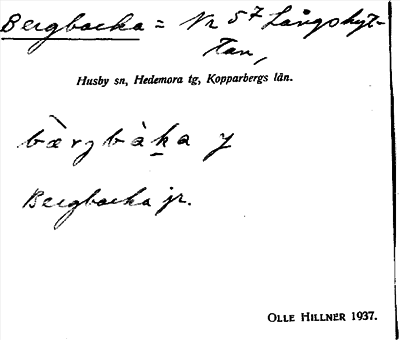 Bergbacka = Nr 57 Långshyt-
tan,
Husby sn, Hedemora tg, Kopparbergs län.
bærgbàka
Bergbacka jr.
OLLE HILLNER 1937.